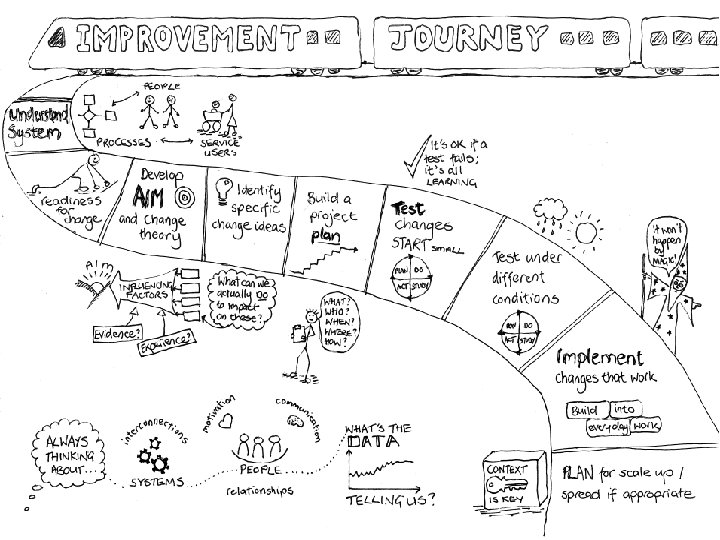 IMPROVEMENT JOURNEY
Understand
System
PEOPLE
PROCESSES
SERVICE
USERS
readiness
for
change
Develop
AIM
and change
theory
Identify
specific
change ideas
Build a
project
plan
Test
changes
START SMALL
PLAN DO
ACT STUDY
It's ok if a
test fails;
it's all
LEARNING
Test under
different
conditions
PLAN DO
ACT STUDY
It won't
happen
by
MAGIC!
Implement
changes that work
Build into
everyday work
AIM
INFLUENCING
FACTORS
Evidence?
Experience?
What can we
actually DO
to impact
on these?
WHAT?
WHO?
WHEN?
WHERE?
HOW?
ALWAYS
THINKING
ABOUT...
interconnections
SYSTEMS
motivation
communication
PEOPLE
relationships
WHAT'S THE
DATA
TELLING US?
CONTEXT
IS KEY
PLAN for scale up /
spread if appropriate